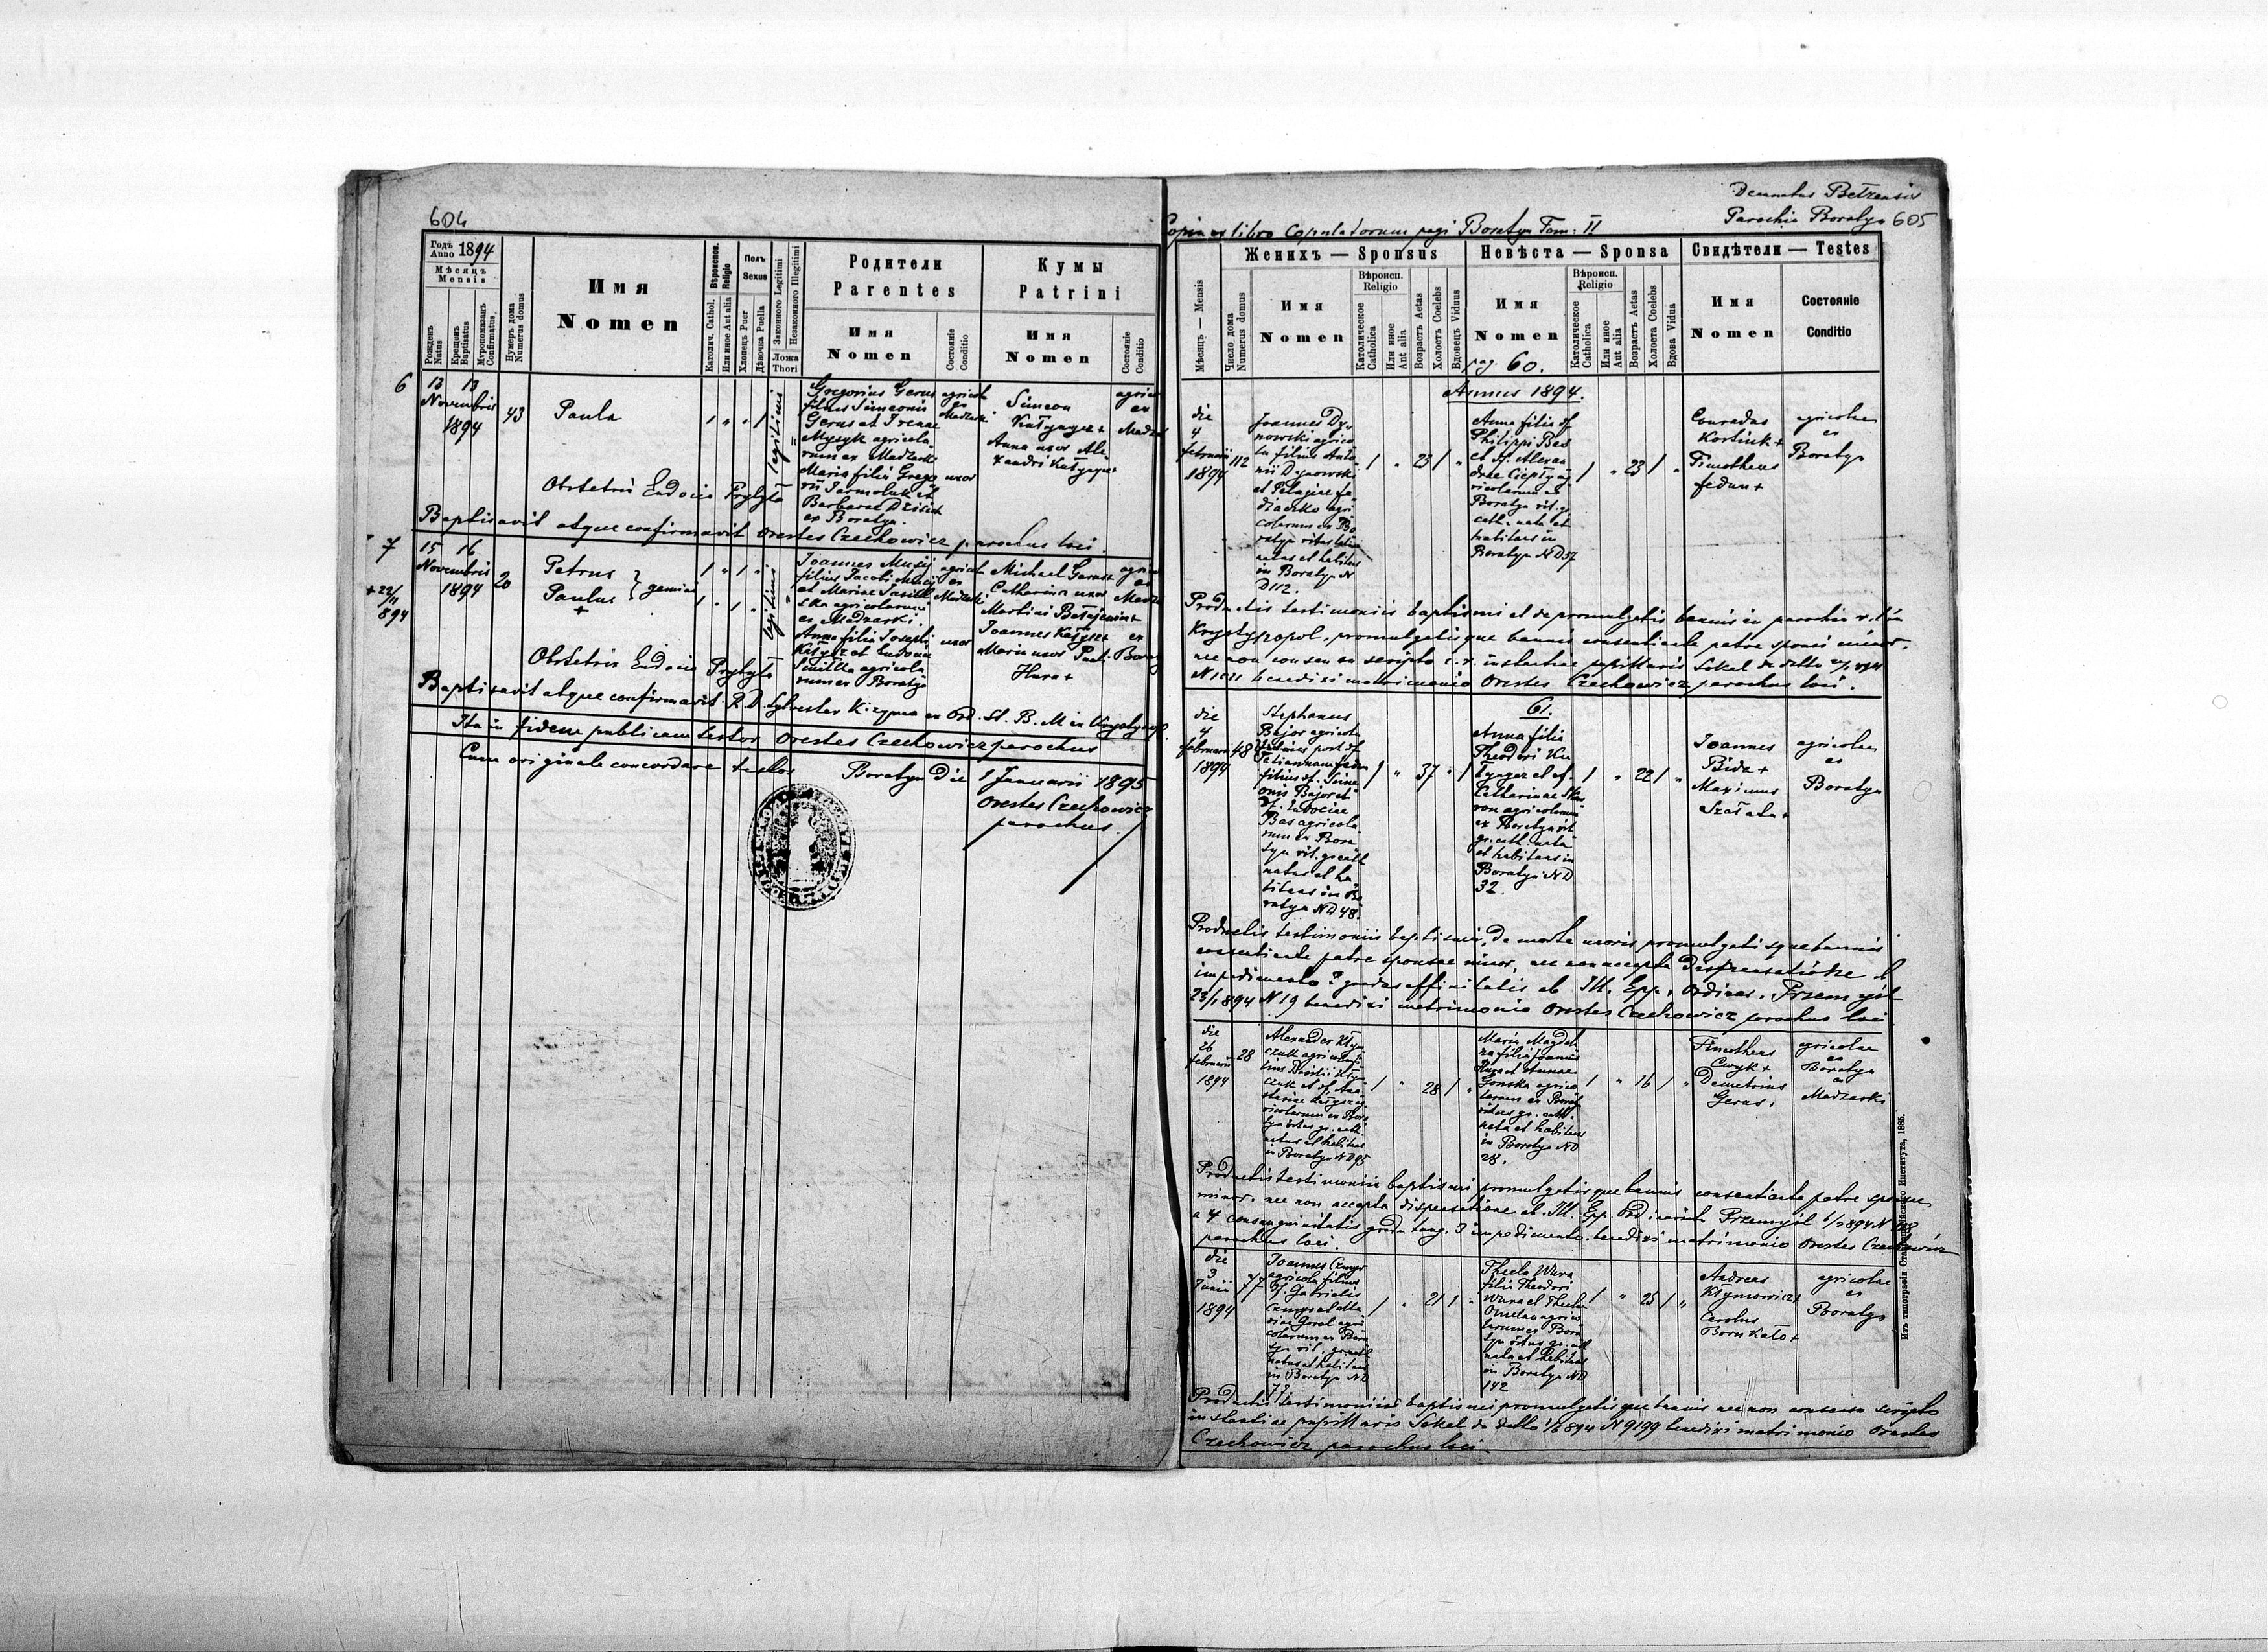 604
Годъ Anno 1894
Мѣсяцъ Mensis
Рожденъ Natus
Крещенъ Baptisatus
Мѵропомазанъ Confirmatus
Нумеръ дома Numerus domus
Имя
Nomen
Вѣроиспов. Religio
Католич. Cathol.
Или иное Aut alia
Полъ
Sexus
Хлопецъ Puer
Дѣвочка Puella
Законного Legitimi
Незаконного Illegitimi
Ложа
Thori
Родители
Parentes
Имя
Nomen
Состояніе
Conditio
Кумы
Patrini
Имя
Nomen
Состояніе
Conditio
6
13 13
Novembris
1894
43
Paula
legitimi
Gregorius Gerus
filius Simeonis
Gerus et Irenae
Mysyk agricola-
rum ex Madzarki
Maria filia Grego
rii Jarmoluk et
Barbarae
ex Boratyn.
agricola
ex
Madzarki
uxor
Simeon
Anna uxor Ale
xandri
agricolae
ex
Obstetrix Eudocia Prytyła
Baptisavit atque confirmavit Orestes Czechowicz parochus loci.
7
15 16
Novembris
1894
20
+ 22/11
894
Petrus
Paulus
+
gemini
legitimi
Joannes Musij
filius Jacobi Musij
et Mariae
ska agricolarum
ex Madzarki.
Anna filia Josephi
Kałysz et Eudociae
Smitka agricola
rum ex Boratyn
agricola
ex
Madzarki
uxor
Michael Gerus+
Catharina uxor
Martini
Joannes Kałysz+
Maria uxor Pauli
Hura+
ex
Obstetrix Eudocia Prytyła
Baptisavit atque confirmavit R.D. Sylvester Kizyma ex Ord. St. B. M. in
Ita in fidem publicam testor Orestes Czechowicz parochus
Cum originale concordare testor Boratyn die 1 Januarii 1895
Orestes Czechowicz
parochus.
Decanatus Bełzensis
Parochia Boratyn 605
Copia ex libro Copulatorum pagi Boratyn Tom: II
Мѣсяцъ — Mensis
Число дома Numerus domus
Женихъ — Sponsus
Имя
Nomen
Вѣроисп.
Religio
Католическое Catholica
Или иное Aut alia
Возрастъ Aetas
Холостъ Coelebs
Вдовецъ Viduus
Невѣста — Sponsa
Имя
Nomen
pag. 60.
Вѣроисп.
Religio
Католическое Catholica
Или иное Aut alia
Возрастъ Aetas
Холоста Coelebs
Вдова Vidua
Свидѣтели — Testes
Имя
Nomen
Состояніе
Conditio
Annus 1894.
die
4
februarii
1894
112
Joannes Dy-
nowski agrico
la filius Anto
nii Dynowski
et Pelagiae Fe
diaczko agri
colarum ex Bo
ratyn ritus latini
natus et habitans
in Boratyn N
D 112.
23
Anna filia
Philippi Bas
et Alexan
drae ag
ricolarum ex
Boratyn rit. gr.
cath. nata et
habitans in
Boratyn ND 37
23
Conradus
Kostiuk+
Timotheus
Fedun+
agricolae
ex
Boratyn
Productis testimoniis baptismi et de promulgatis bannis in parochia r. l. in
Krystynopol, promulgatisque bannis consentiente patre sponsi minor.
nec non consensu scripto c. r. instantiae pupillaris Sokal de datto
benedixi matrimonio Orestes Czechowicz parochus loci.
61.
die
4
februarii
1894
48
Stephanus
Bajor agricola
viduus post
filius Sime
onis Bajor et
Eudociae
Bas agricola
rum ex Bora
tyn rit. gr. cath
natus et ha
bitans in Bo
ratyn ND 48.
37
Anna filia
Theodori Ku
et
Catharinae
ron agricolarum
ex Boratyn rit
gr. cath. nata
et habitans in
Boratyn ND
32.
22
Joannes
Bida+
Maximus
Szałata+
agricolae
ex
Boratyn
Productis testimoniis baptismi, de morte uxoris promulgatisque bannis
consentiente patre sponsae minor, nec non accepta dispensatione ab
impedimento 2 gradus affinitatis ab Ill. Epp. Ordinar. Przemysl
23/1 894 N 19 benedixi matrimonio Orestes Czechowicz parochus loci
die
26
februarii
1894
28
Alexander
czuk agricola fi
lius Basilii
czuk et Ana
stasiae ag
ricolarum ex Bora
tyn ritus gr. cath
natus et habitans
in Boratyn ND 95
28
Maria Magdale
na filia Joannis
Hura et Annae
Gonska agrico
larum ex Boratyn
ritus gr. cath.
nata et habitans
in Boratyn ND
28.
16
Timotheus
Cwyk+
Demetrius
Gerus+
agricolae
ex
Boratyn
ex
Madzarki
Productis testimoniis baptismi promulgatisque bannis consentiente patre sponsae
minor. nec non accepta dispensatione ab Ill. Epp. Ordinariat Przemysl
a 4 consanguinitatis gradu tang. 3 impedimento benedixi matrimonio Orestes Czechowicz
parochus loci.
die
3
Junii
1894
77
Joannes
agricola filius
Gabrielis
et Ma
riae Goral agri
colarum ex Bora
tyn rit. gr. cath
natus et habitans
in Boratyn ND
77
21
Thecla Wura
filia Theodori
Wura et Theclae
Omelan agrico
larum ex Bora
tyn ritus gr. cath
nata et habitans
in Boratyn ND
142
25
Andreas
Klymowicz+
Carolus
Bornkało+
agricolae
ex
Boratyn
Productis testimoniis baptismi promulgatisque bannis nec non consensu scripto
instantiae pupillaris Sokal de datto 1/6 894 N 9199 benedixi matrimonio Orestes
Czechowicz parochus loci.
Изъ типографіи Ставропигійского Института, 1885.